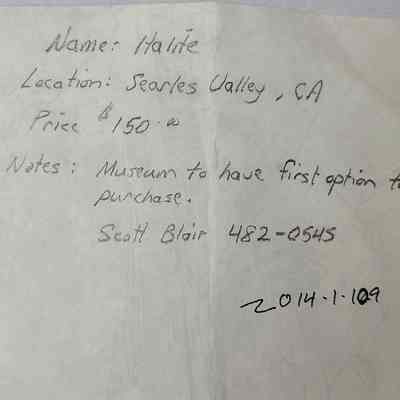 Name: Halite
Location: Searles Valley, CA
Price $150.00
Notes: Museum to have first option to
purchase.
Scott Blair 482-0545
2014.1.109